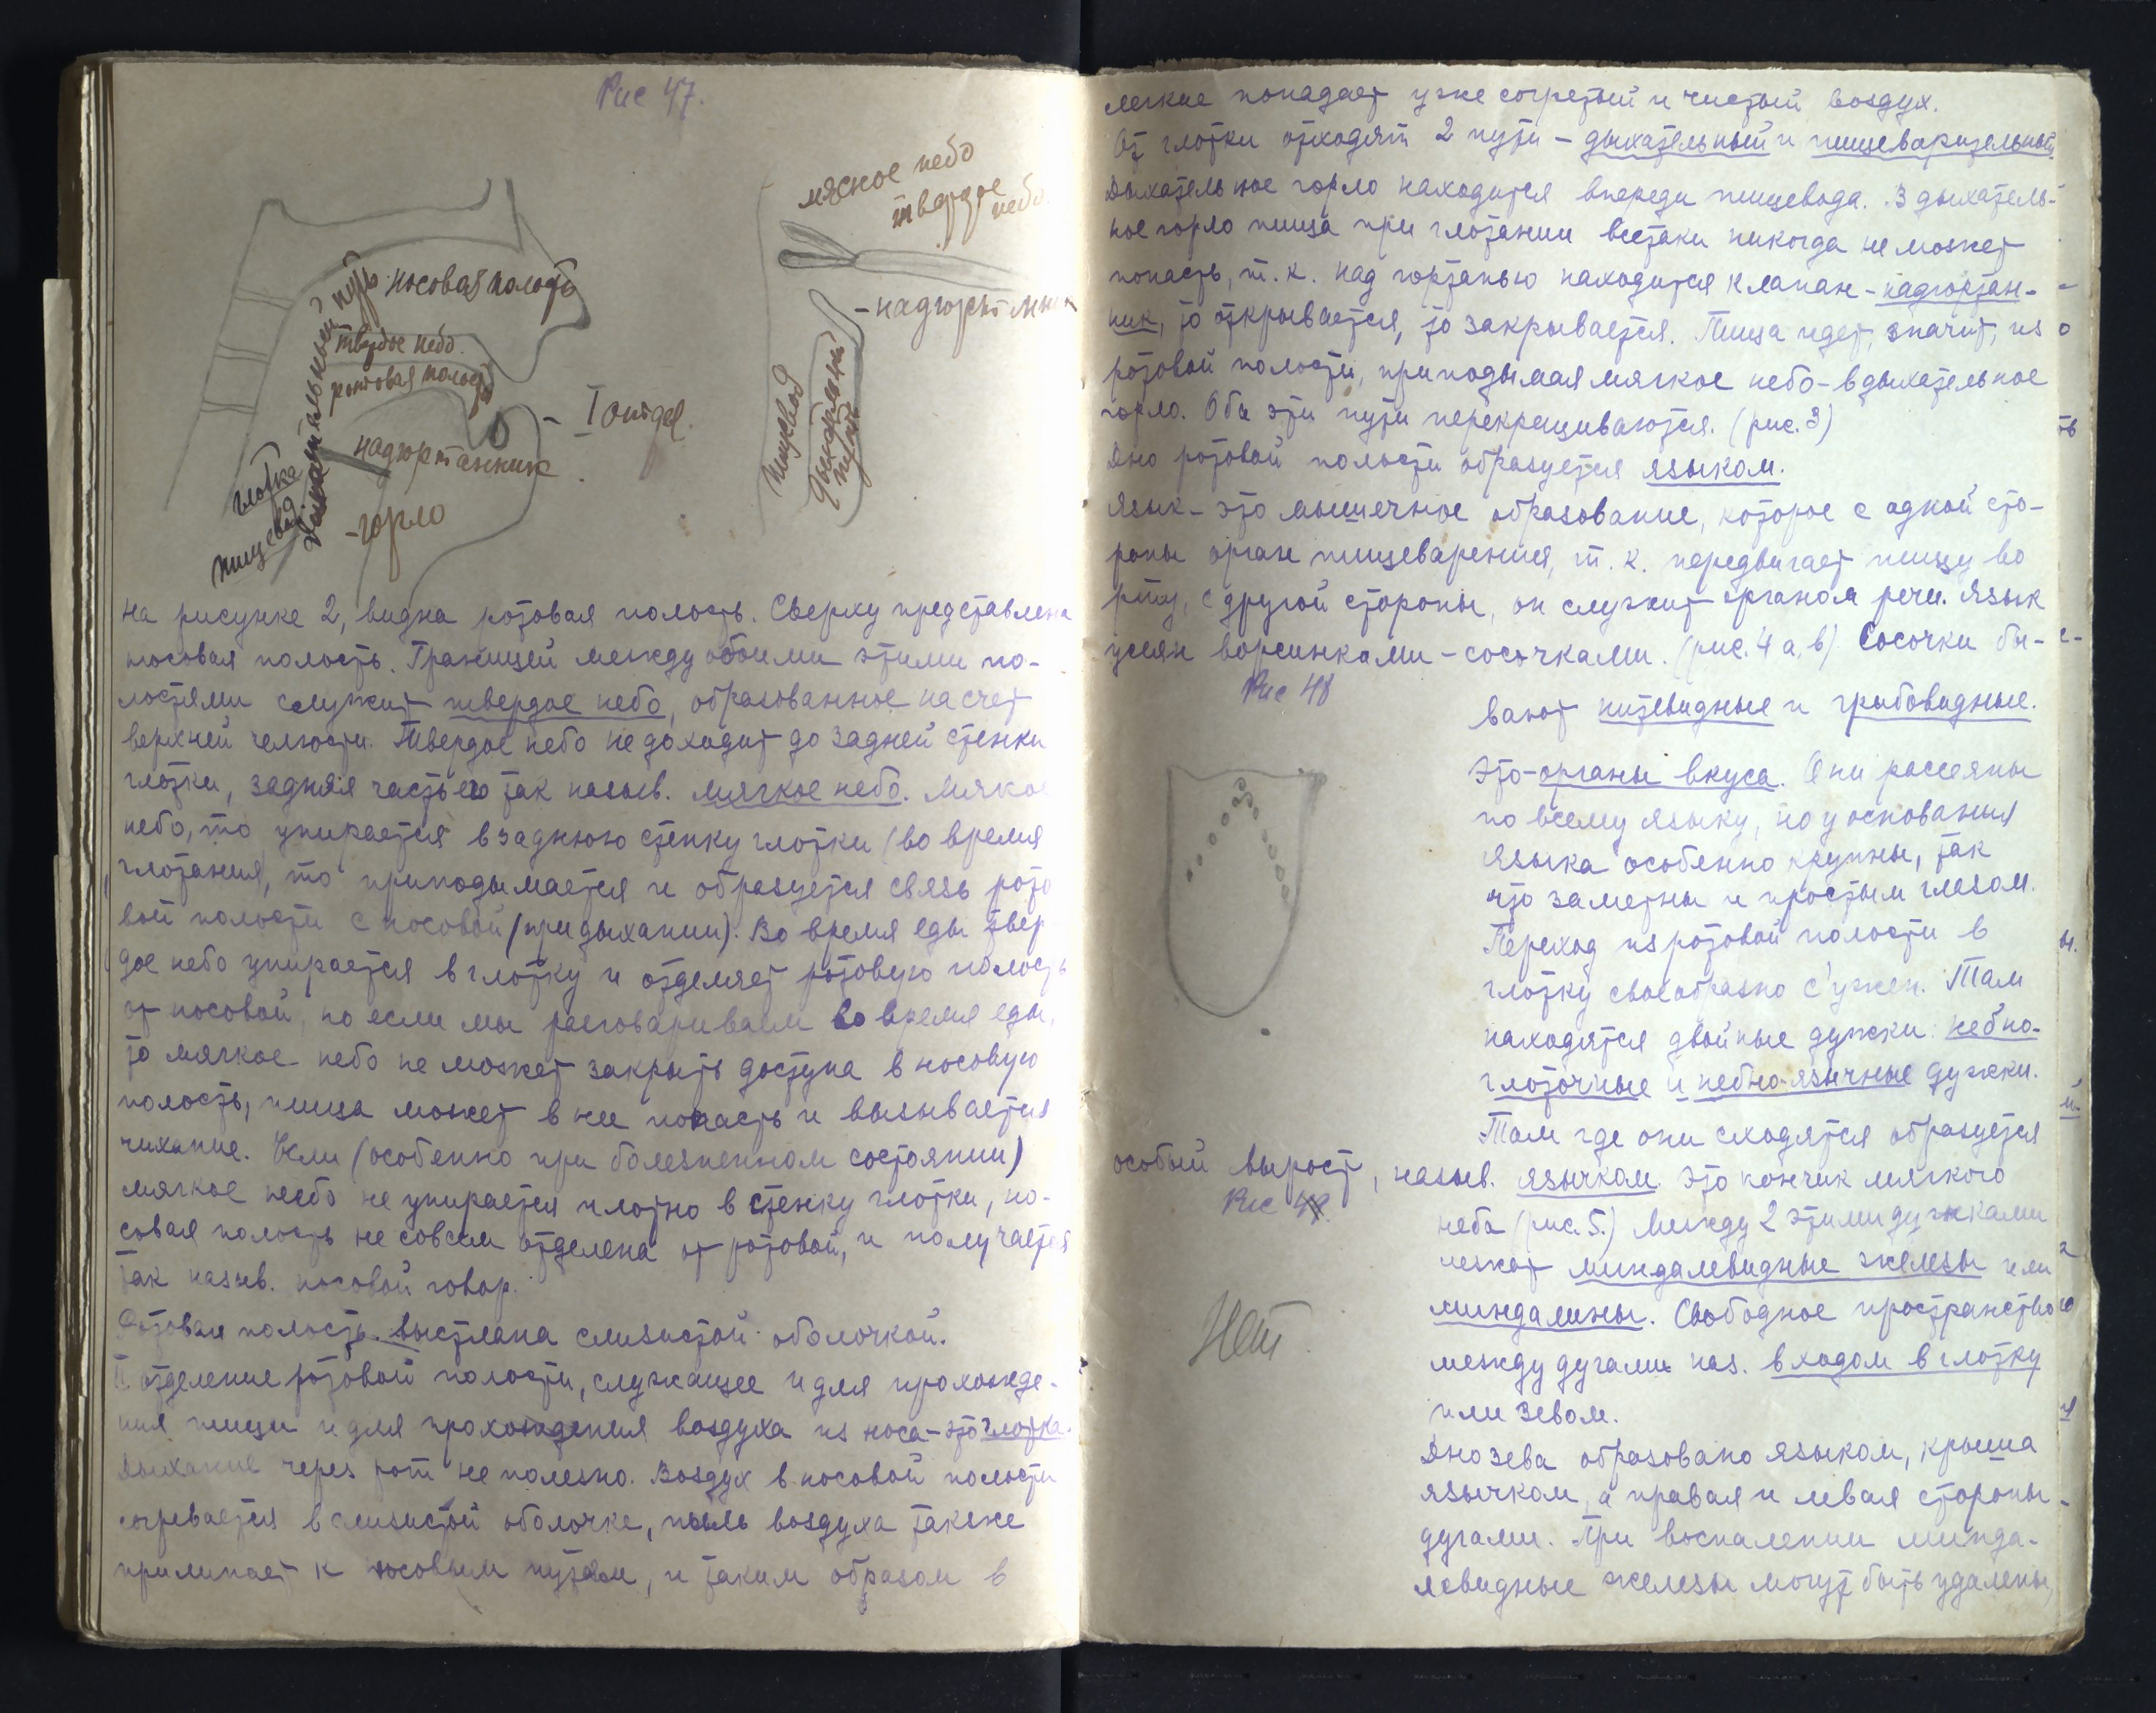 Рис 47.
мягкое небо
твердое
небо.
носовая полость
твердое небо.
ротовая полость
- надгортанник
- I отдел.
надгортанник
- горло
глотка
пищевод.
Дыхательный путь
Пищевод
Дыхательный
путь
на рисунке 2, видна ротовая полость. Сверху представлена
носовая полость. Границей между обоими этими по-
лостями служит твердое небо, образованное на счет
верхней челюсти. Твердое небо не доходит до задней стенки
глотки, задняя часть его так назыв. мягкое небо. Мягкое
небо, то упирается в заднюю стенку глотки (во время
глотания), то приподымается и образуется связь рото
вой полости с носовой (при дыхании). Во время еды твер
дое небо упирается в глотку и отделяет ротовую полость
от носовой, но если мы разговариваем во время еды,
то мягкое небо не может закрыть доступа в носовую
полость, пища может в нее попасть и вызывается
чихание. Если (особенно при болезненном состоянии)
мягкое небо не упирается плотно в стенку глотки, но-
совая полость не совсем отделена от ротовой, и получается
так назыв. носовой говор.
Ротовая полость выстлана слизистой оболочкой.
II отделение ротовой полости, служащее и для прохожде-
ния пищи и для прохождения воздуха из носа - это глотка.
Дыхание через рот не полезно. Воздух в носовой полости
согревается в слизистой оболочке, пыль воздуха также
прилипает к носовым путям, и таким образом в
легкие попадает уже согретый и чистый воздух.
От глотки отходят 2 пути - дыхательный и пищеварительный.
Дыхательное горло находится впереди пищевода. В дыхатель-
ное горло пища при глотании всетаки никогда не может
попасть, т. к. над гортанью находится клапан - надгортан-
ник, то открывается, то закрывается. Пища идет, значит, из
ротовой полости, приподымая мягкое небо - в дыхательное
горло. Оба эти пути перекрещиваются. (рис. 3)
Дно ротовой полости образуется языком.
Язык - это мышечное образование, которое с одной сто-
роны орган пищеварения, т. к. передвигает пищу во
рту, с другой стороны, он служит органом речи. Язык
усеян ворсинками - сосочками. (рис. 4 а, в) Сосочки бы-
Рис 48
вают нитевидные и грибовидные.
Это - органы вкуса. Они рассеяны
по всему языку, но у основания
языка особенно крупны, так
что заметны и простым глазом.
Переход из ротовой полости в
глотку своеобразно с'ужен. Там
находятся двойные дужки: небно-
глоточные и небно-язычные дужки.
Там где они сходятся образуется
особый вырост, назыв. язычком. Это кончик мягкого
Рис 49.
неба (рис. 5.) Между 2 этими дужками
лежат миндалевидные железы или
миндалины. Свободное пространство
Нет.
между дугами наз. входом в глотку
или зевом.
Дно зева образовано языком, крыша
язычком, а правая и левая стороны
дугами. При воспалении минда-
левидные железы могут быть удалены,